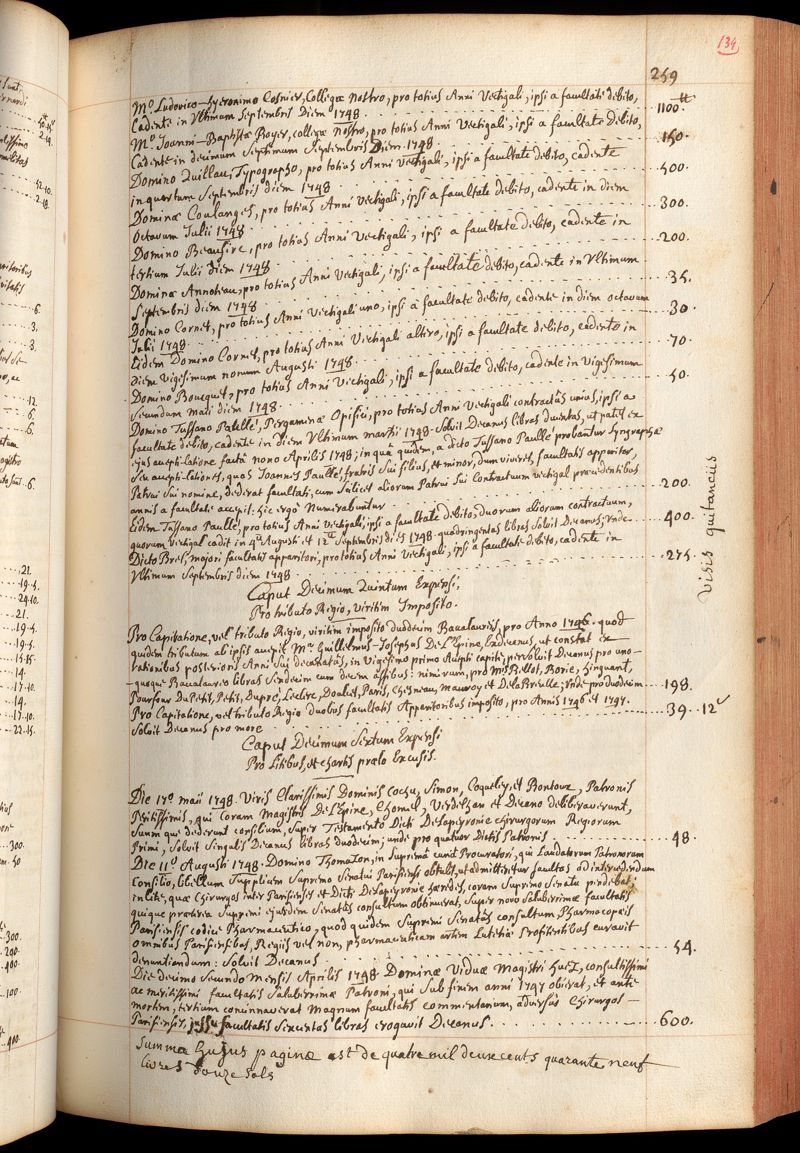 134
259
M.º Ludovico-Hyeronimo Cosnier, Collegæ Nostro, pro totius Anni Vectigali, ipsi a facultate debito,
Cadente in Vltimum Septembris Diem 1748 . . . 1100 ₶
M.º Joanni-Baptistæ Boyer, collegæ Nostro, pro totius Anni Vectigali, ipsi a facultate debito,
Cadente in decimum Septimum Septembris Diem 1748 . . . 150.
Domino Quillau, Typographo, pro totius Anni Vectigali, ipsi a facultate debito, cadente
in quartum Septembris diem 1748 . . . 500.
Dominæ Coulanges, pro totius Anni Vectigali, ipsi a facultate debito, cadente in diem
Octavum Julii 1748 . . . 300.
Domino Beausire, pro totius Anni Vectigali, ipsi a facultate debito, cadente in
tertium Julii diem 1748 . . . 200.
Dominæ Annoteau, pro totius Anni Vectigali, ipsi a facultate debito, cadente in Vltimum
Septembris diem 1748 . . . 35.
Domino Cornet, pro totius Anni Vectigali uno, ipsi a facultate debito, cadente in diem octavum
Julii 1748 . . . 30.
Eidem Domino Cornet, pro totius Anni Vectigali altero, ipsi a facultate debito, cadente in
Diem Vigesimum nonum Augusti 1748 . . . 70.
Domino Boucquet, pro totius Anni Vectigali, ipsi a facultate debito, cadente in Vigesimum
Secundum Maii diem 1748 . . . 50.
Domino Tussano Paulle, Pergamenæ Opifici, pro totius Anni Vectigali contractûs unius, ipsi a
facultate debito, cadente in Diem Vltimum martii 1748. Solvit Decanus libras ducentas, ut patet ex
ejus accepti-latione factâ nono Aprilis 1748; in quâ quidem, a dicto Tussano Paulle probantur Syngraphæ
seu accepti-lationes, quas Joannes Paulle, fratris Sui filius, et minor, dum viveret, facultatis apparitor,
Patrui Sui nomine, dederat facultati, cum Scilicet aliorum Patrui Sui contractuum vectigal præcedentibus
annis a facultate accepit: hic ergo Numerabuntur . . . 200.
Eidem Tussano Paulle, pro totius Anni Vectigali, ipsi a facultate debito, duorum aliorum contractuum,
quorum vectigal cadit in 4.am Augusti et 12.am Septembris dies 1748. quadringentas libras Solvit Decanus; Unde . . . 400.
Dicto Bret, majori facultatis apparitori, pro totius Anni Vectigali, ipsi a facultate debito, cadente in
Vltimum Septembris diem 1748 . . . 275.
Visis quitanciis
Caput Decimum Quintum Expensi;
Pro tributo Regio, viritim Imposito.
Pro Capitatione, vel tributo Regio, viritim imposito duodecim Bacalaureis, pro Anno 1746. quod
quidem tributum ab ipsis accepit M.er Guillelmus-Josephus De L'Epine, Exdecanus, ut constat ex
rationibus posterioris Anni Sui decanatûs, in Vigesimo primo Accepti capite; persolvit Decanus pro uno-
quoque Bacalaureo libras Sexdecim cum decem assibus: nimirum, pro M.ris Bellot, Borie, Hinguant,
Pourfour Du Petit, Petit, Dupré, Leclerc, Doulcet, Paris, Chesneau, Mauroy et De la Breulle; Unde pro duodecim . . . 198.
Pro Capitatione, vel tributo Regio Duobus facultatis Apparitoribus imposito, pro Annis 1746 et 1747.
Solvit Decanus pro more . . . 39. 12ˢ
Caput Decimum Sextum Expensi
Pro Litibus, et chartis prælo Excusis.
Die 17.º maii 1748. Viris Clarissimis Dominis Cochu, Simon, Coqueley, et Bontoux, Patronis
Peritissimis, qui Coram Magistris De L'Epine, Chomel, Verdelhan et Decano deliberaverunt,
Suumque dederunt consilium, Super Testamento Dicti De Lapeyronie chirurgorum Regiorum
Primi, Solvit Singulis Decanus libras duodecim; unde pro quatuor Dictis Patronis . . . 48.
Die 11.º Augusti 1748. Domino Thomazon, in Supremâ curiâ Procuratori, qui Laudatorum Patronorum
Consilio, libellum Supplicem Supremo Senatui Parisiensi obtulit, ut admitteretur facultas ad intercedendum
in lite, quæ Chirurgos inter Parisienses et Dicti De Lapeyronie hæredes, coram Supremo Senatu pendebat;
quique præterea Supremi ejusdem Senatûs consultum obtinuerat, Super novo Saluberrimæ facultatis
Parisiensis codice Pharmaceutico, quod quidem Supremi Senatûs consultum, Pharmacopæis
omnibus Parisiensibus, Regiis vel non, pharmaceuticam artem Lutetiæ Profitentibus curavit
denuntiandum: Solvit Decanus . . . 54.
Die decimo Secundo Mensis Aprilis 1748 Dominæ Viduæ Magistri Huez, consultissimi
ac meritissimi facultatis Saluberrimæ Patroni, qui Sub finem anni 1747 obierat, et ante
mortem, tertium concinnaverat Magnum facultatis commentarium, adversùs Chirurgos-
Parisienses, jussu facultatis Sexcentas libras erogavit Decanus. . . . 600.
Summa hujus paginæ est de quatre mil deux cents quarante neuf
livres douze Sols